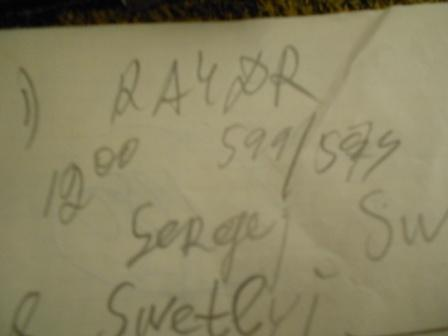 1) RA4DR
12 00 599/595
Sergej Sw
Swetlyj